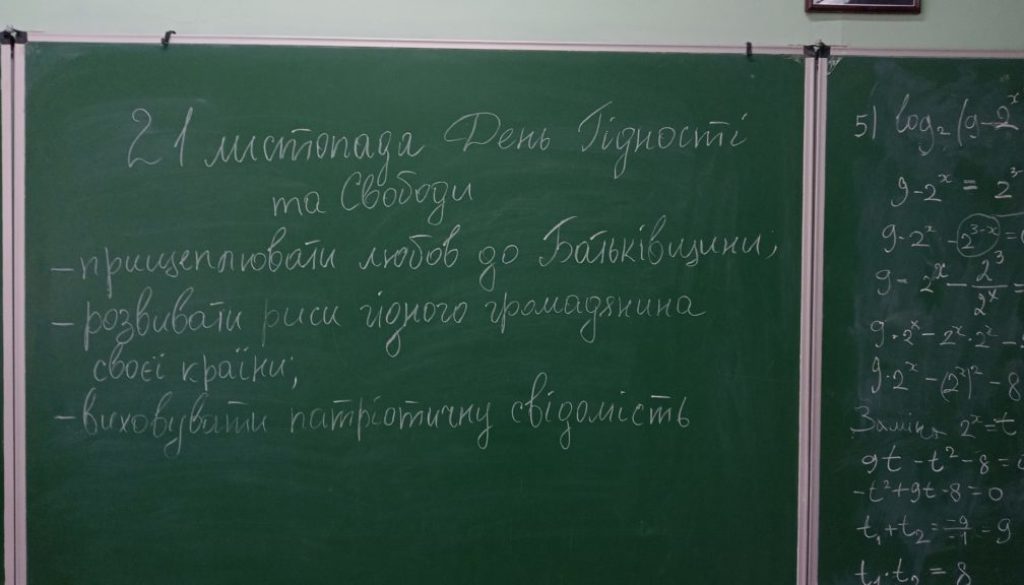 21 листопада День Гідності
та Свободи
- прищеплювати любов до Батьківщини;
- розвивати риси гідного громадянина
своєї країни;
- виховувати патріотичну свідомість
5) log₂(9-2ˣ
9-2ˣ = 2³
9-2ˣ - 2³⁻ˣ =
9 - 2ˣ - 2³/2ˣ =
9·2ˣ - 2ˣ·2ˣ -
9·2ˣ - (2ˣ)² - 8
Заміна 2ˣ = t
9t - t² - 8 =
-t² + 9t - 8 = 0
t₁ + t₂ = -9/-1 = 9
t₁·t₂ = 8